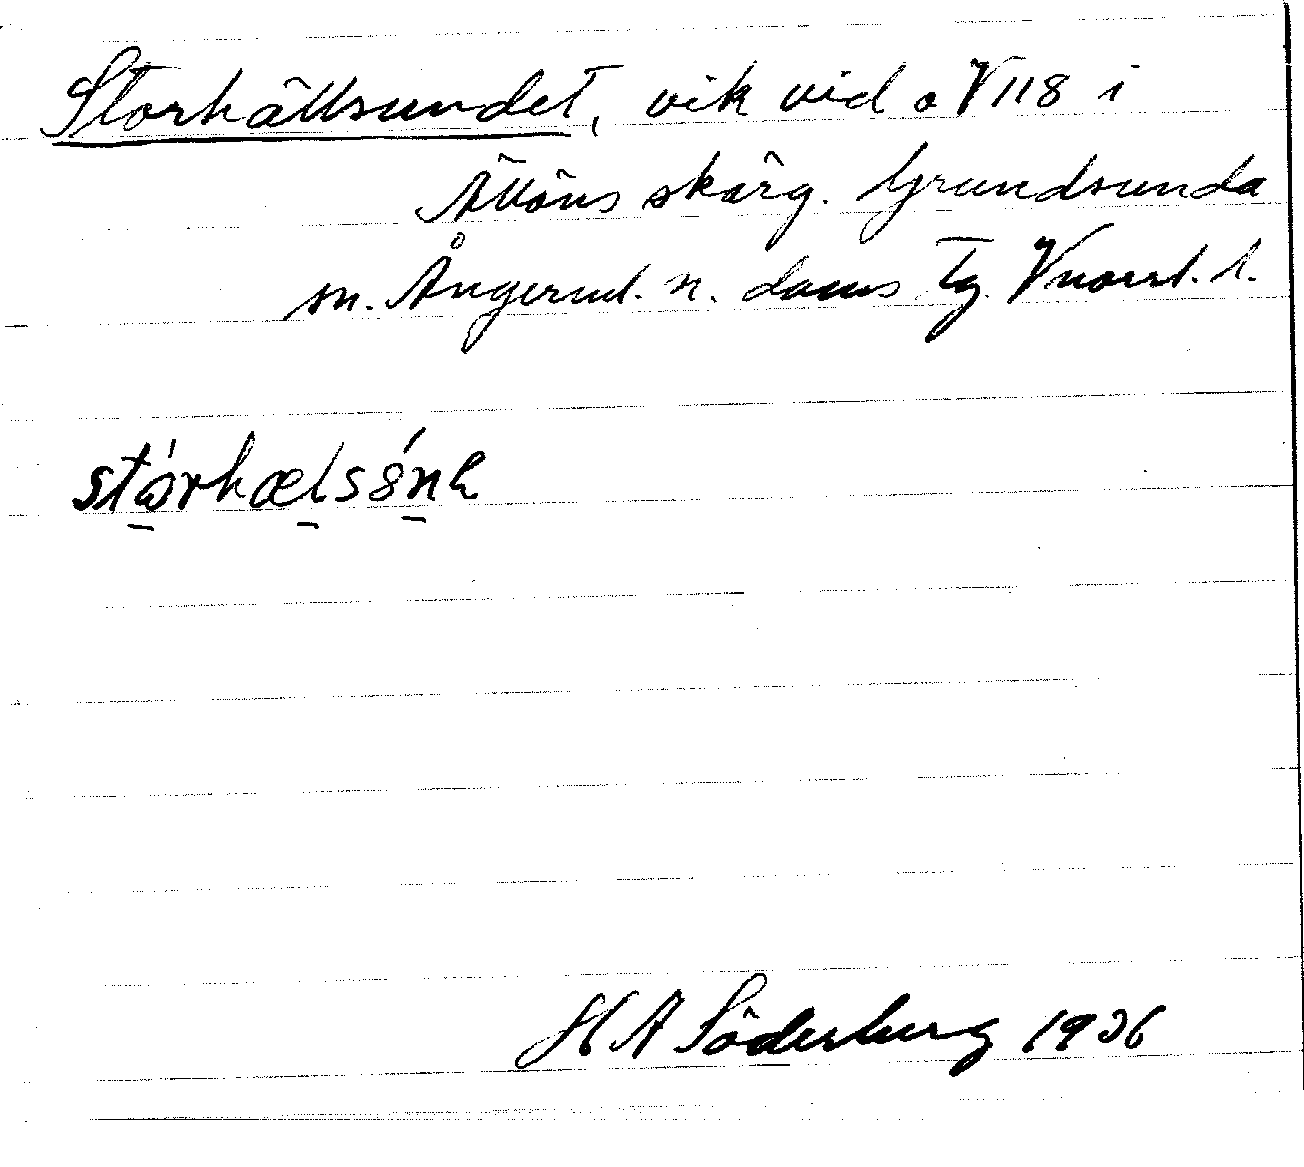 Storhällsundet, vik vid o V 118 i
Ällöns skärg. Grundsunda
sn. Ångerml. n. doms Tg Vnorrl. l.
stórhælsún
H A Söderberg 1936